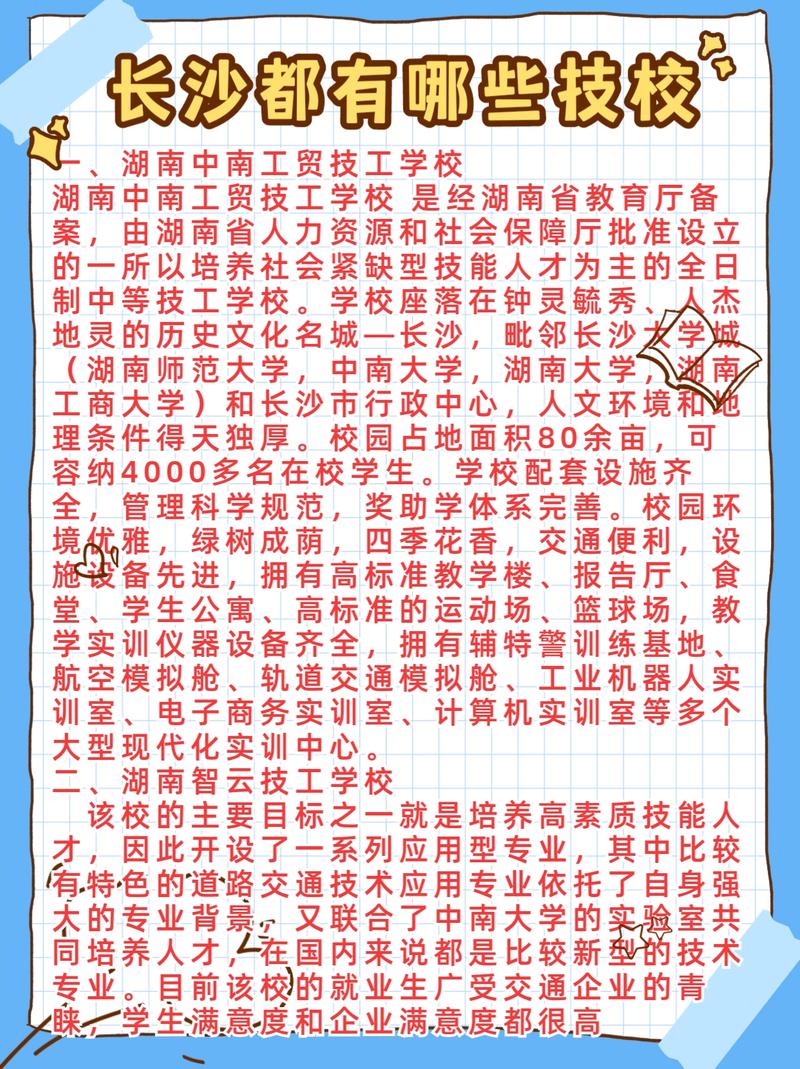 长沙都有哪些技校
一、湖南中南工贸技工学校
湖南中南工贸技工学校 是经湖南省教育厅备
案，由湖南省人力资源和社会保障厅批准设立
的一所以培养社会紧缺型技能人才为主的全日
制中等技工学校。学校座落在钟灵毓秀、人杰
地灵的历史文化名城—长沙，毗邻长沙大学城
（湖南师范大学，中南大学，湖南大学，湖南
工商大学）和长沙市行政中心，人文环境和地
理条件得天独厚。校园占地面积80余亩，可
容纳4000多名在校学生。学校配套设施齐
全，管理科学规范，奖助学体系完善。校园环
境优雅，绿树成荫，四季花香，交通便利，设
施设备先进，拥有高标准教学楼、报告厅、食
堂、学生公寓、高标准的运动场、篮球场，教
学实训仪器设备齐全，拥有辅特警训练基地、
航空模拟舱、轨道交通模拟舱、工业机器人实
训室、电子商务实训室、计算机实训室等多个
大型现代化实训中心。
二、湖南智云技工学校
该校的主要目标之一就是培养高素质技能人
才，因此开设了一系列应用型专业，其中比较
有特色的道路交通技术应用专业依托了自身强
大的专业背景，又联合了中南大学的实验室共
同培养人才，在国内来说都是比较新型的技术
专业。目前该校的就业生广受交通企业的青
睐，学生满意度和企业满意度都很高